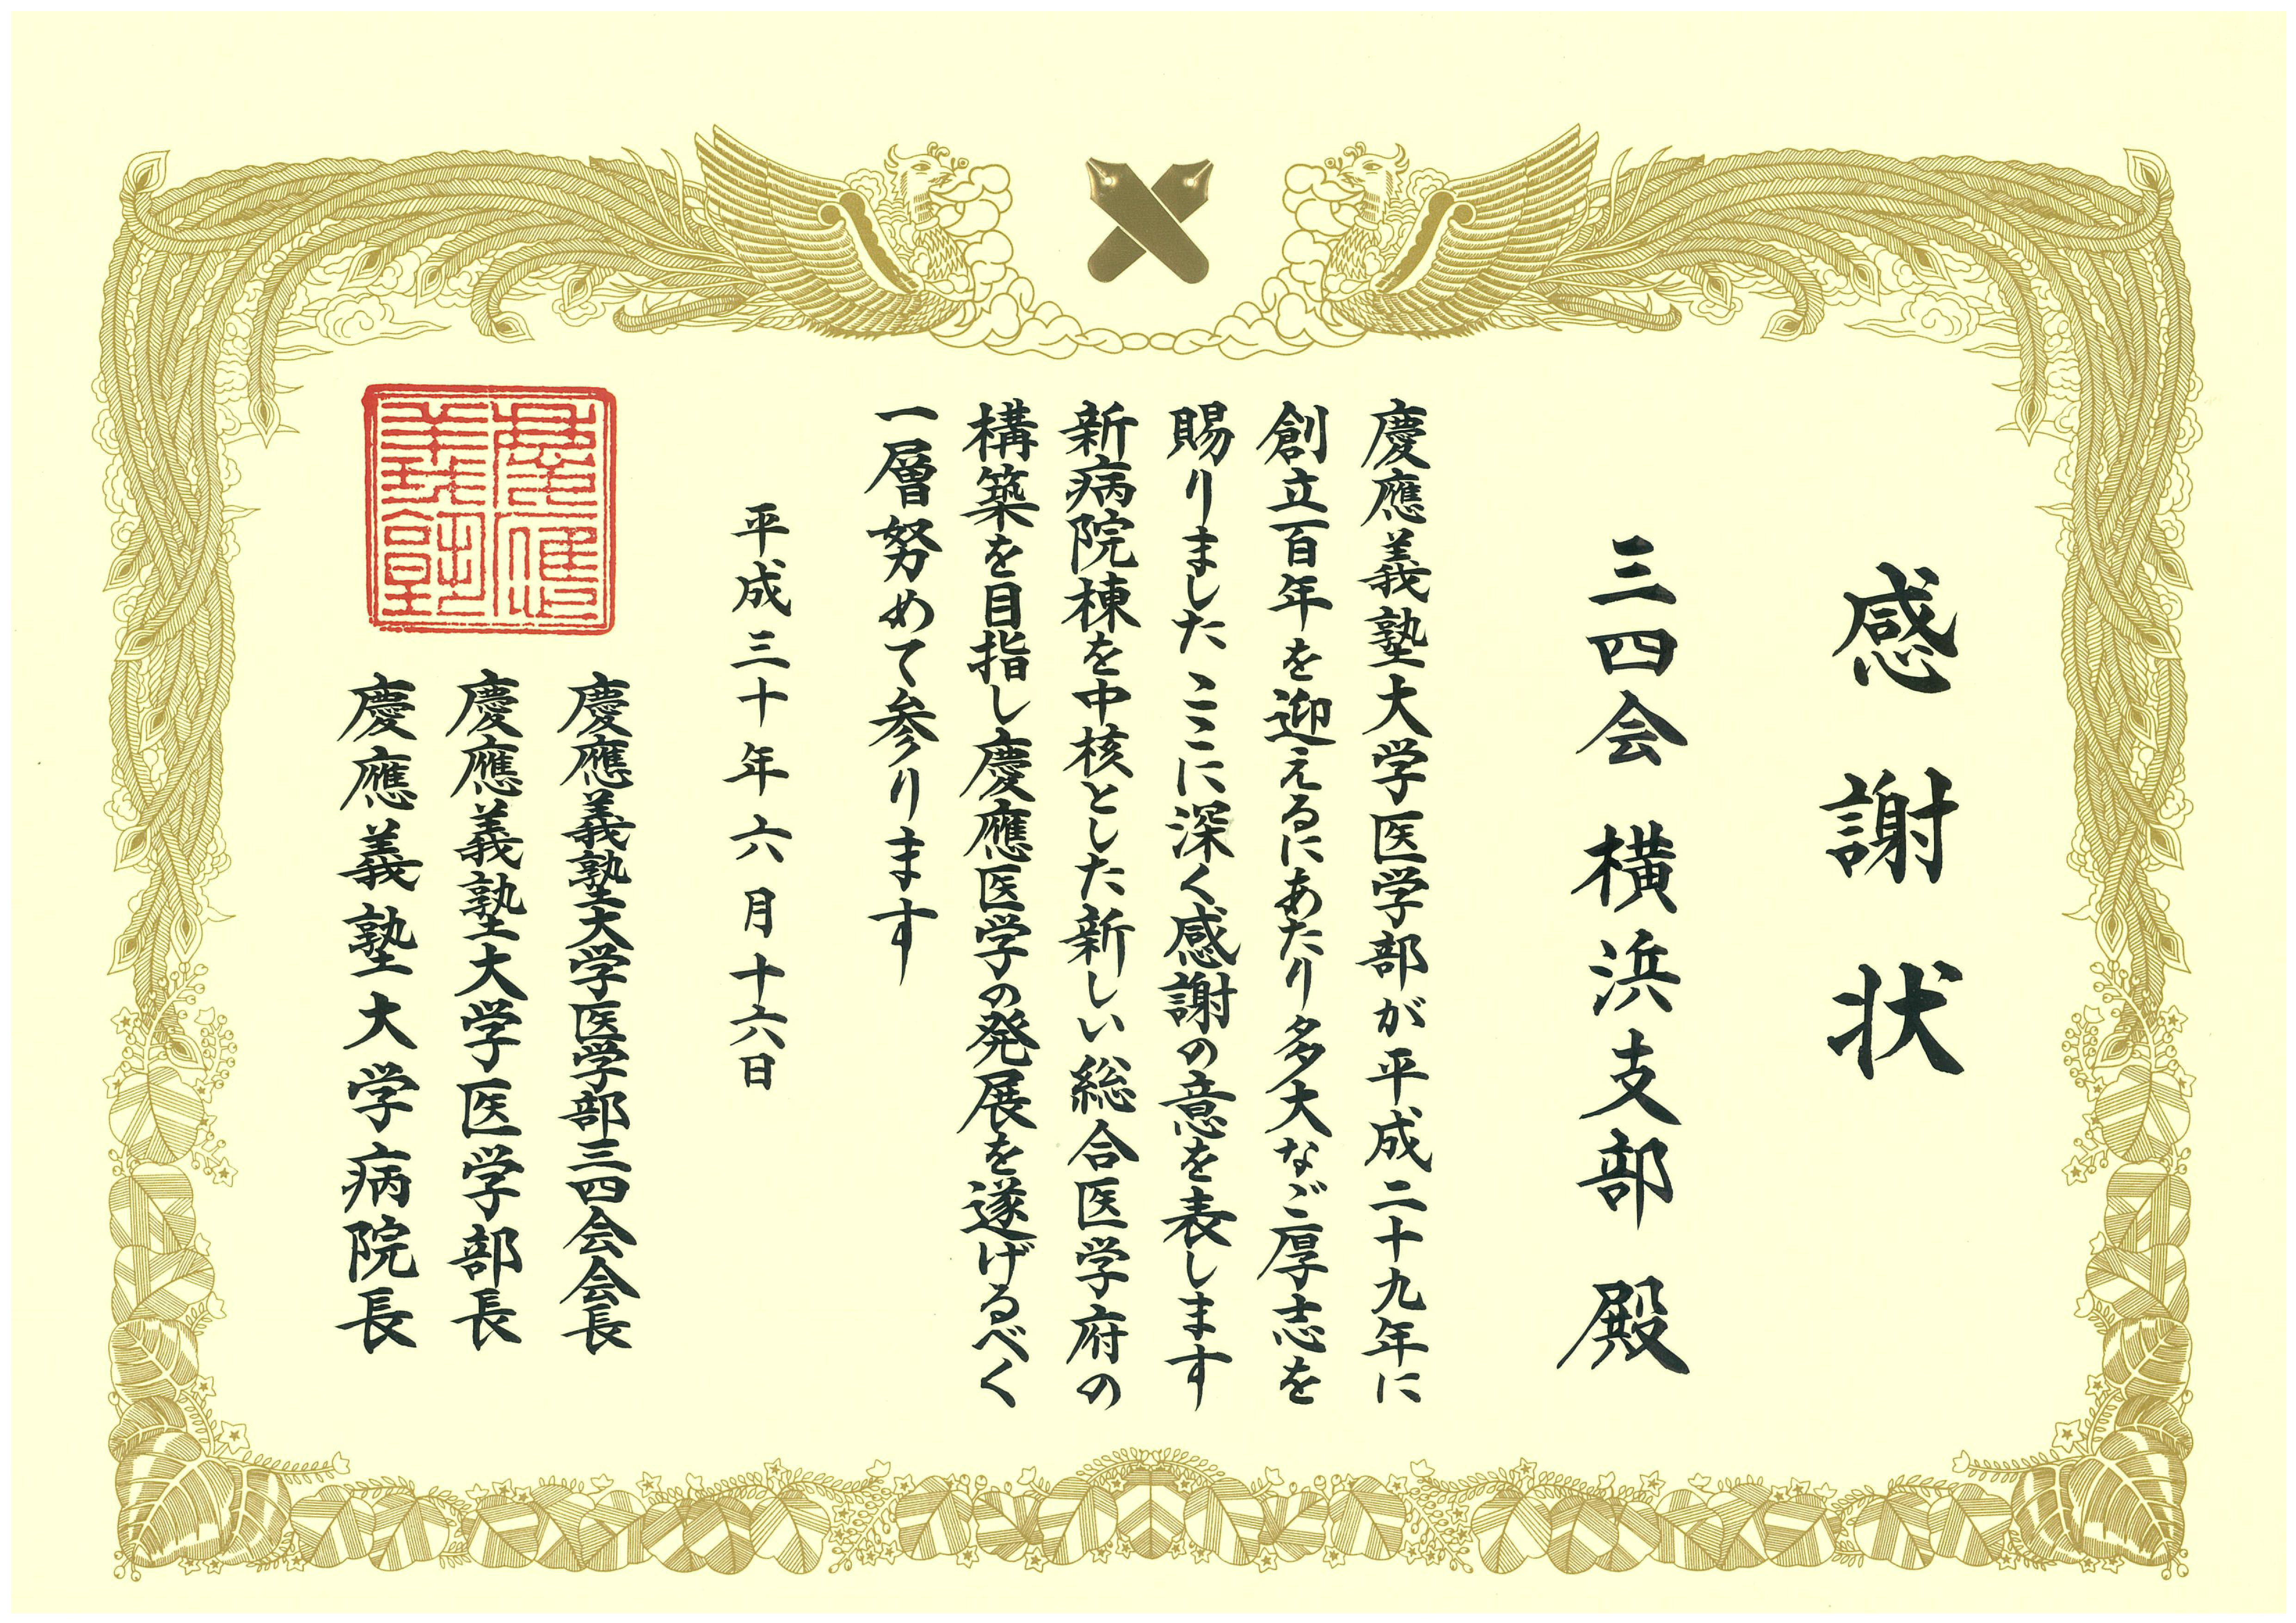 感謝状
三四会 横浜支部 殿
慶應義塾大学医学部が平成二十九年に
創立百年を迎えるにあたり多大なご厚志を
賜りました ここに深く感謝の意を表します
新病院棟を中核とした新しい総合医学府の
構築を目指し慶應医学の発展を遂げるべく
一層努めて参ります
平成三十年六月十六日
慶應義塾大学医学部三四会会長
慶應義塾大学医学部長
慶應義塾大学病院長
慶應
義塾